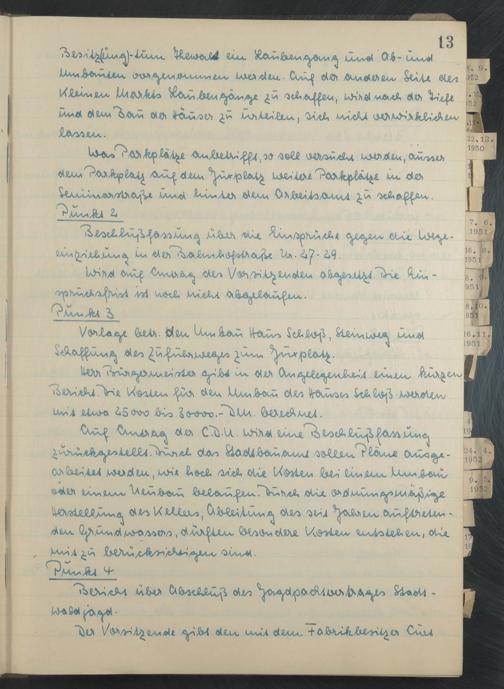 13
Besitz(ung) tum Ilewald ein Laubengang und Ab- und
Umbauten vorgenommen werden. Auf der anderen Seite des
Kleinen Markts Laubengänge zu schaffen, wird nach der Tiefe
und dem Bau der Häuser zu urteilen, sich nicht verwirklichen
lassen.
Was Parkplätze anbetrifft, so soll versucht werden, ausser
dem Parkplatz auf dem Juxplatz weitere Parkplätze in der
Seminarstraße und hinter dem Arbeitsamt zu schaffen.
Punkt 2
Beschlußfassung über die Einsprüche gegen die Wege-
einziehung in der Bahnhofstraße Nr. 27-29.
Wird auf Antrag des Vorsitzenden abgesetzt. Die Ein-
spruchsfrist ist noch nicht abgelaufen.
Punkt 3
Vorlage betr. den Umbau Haus Schloß, Steinweg und
Schaffung des Zufuhrweges zum Juxplatz.
Herr Bürgermeister gibt in der Angelegenheit einen kurzen
Bericht. Die Kosten für den Umbau des Hauses Schloß werden
mit etwa 25000 bis 30000.- DM. berechnet.
Auf Antrag der C.D.U. wird eine Beschlußfassung
zurückgestellt. Durch das Stadtbauamt sollen Pläne ausge-
arbeitet werden, wie hoch sich die Kosten bei einem Umbau
oder einem Neubau belaufen. Durch die ordnungsmäßige
Herstellung des Kellers, Ableitung des seit Jahren auftreten-
den Grundwassers, dürften besondere Kosten entstehen, die
mit zu berücksichtigen sind.
Punkt 4
Bericht über Abschluß des Jagdpachtvertrages Stadt-
waldjagd.
Der Vorsitzende gibt den mit dem Fabrikbesitzer Curt
22.12.
1950
7. 6.
1951
1951
10.
1951
16.11.
1951
24. 4.
1952
9. 5.
1952